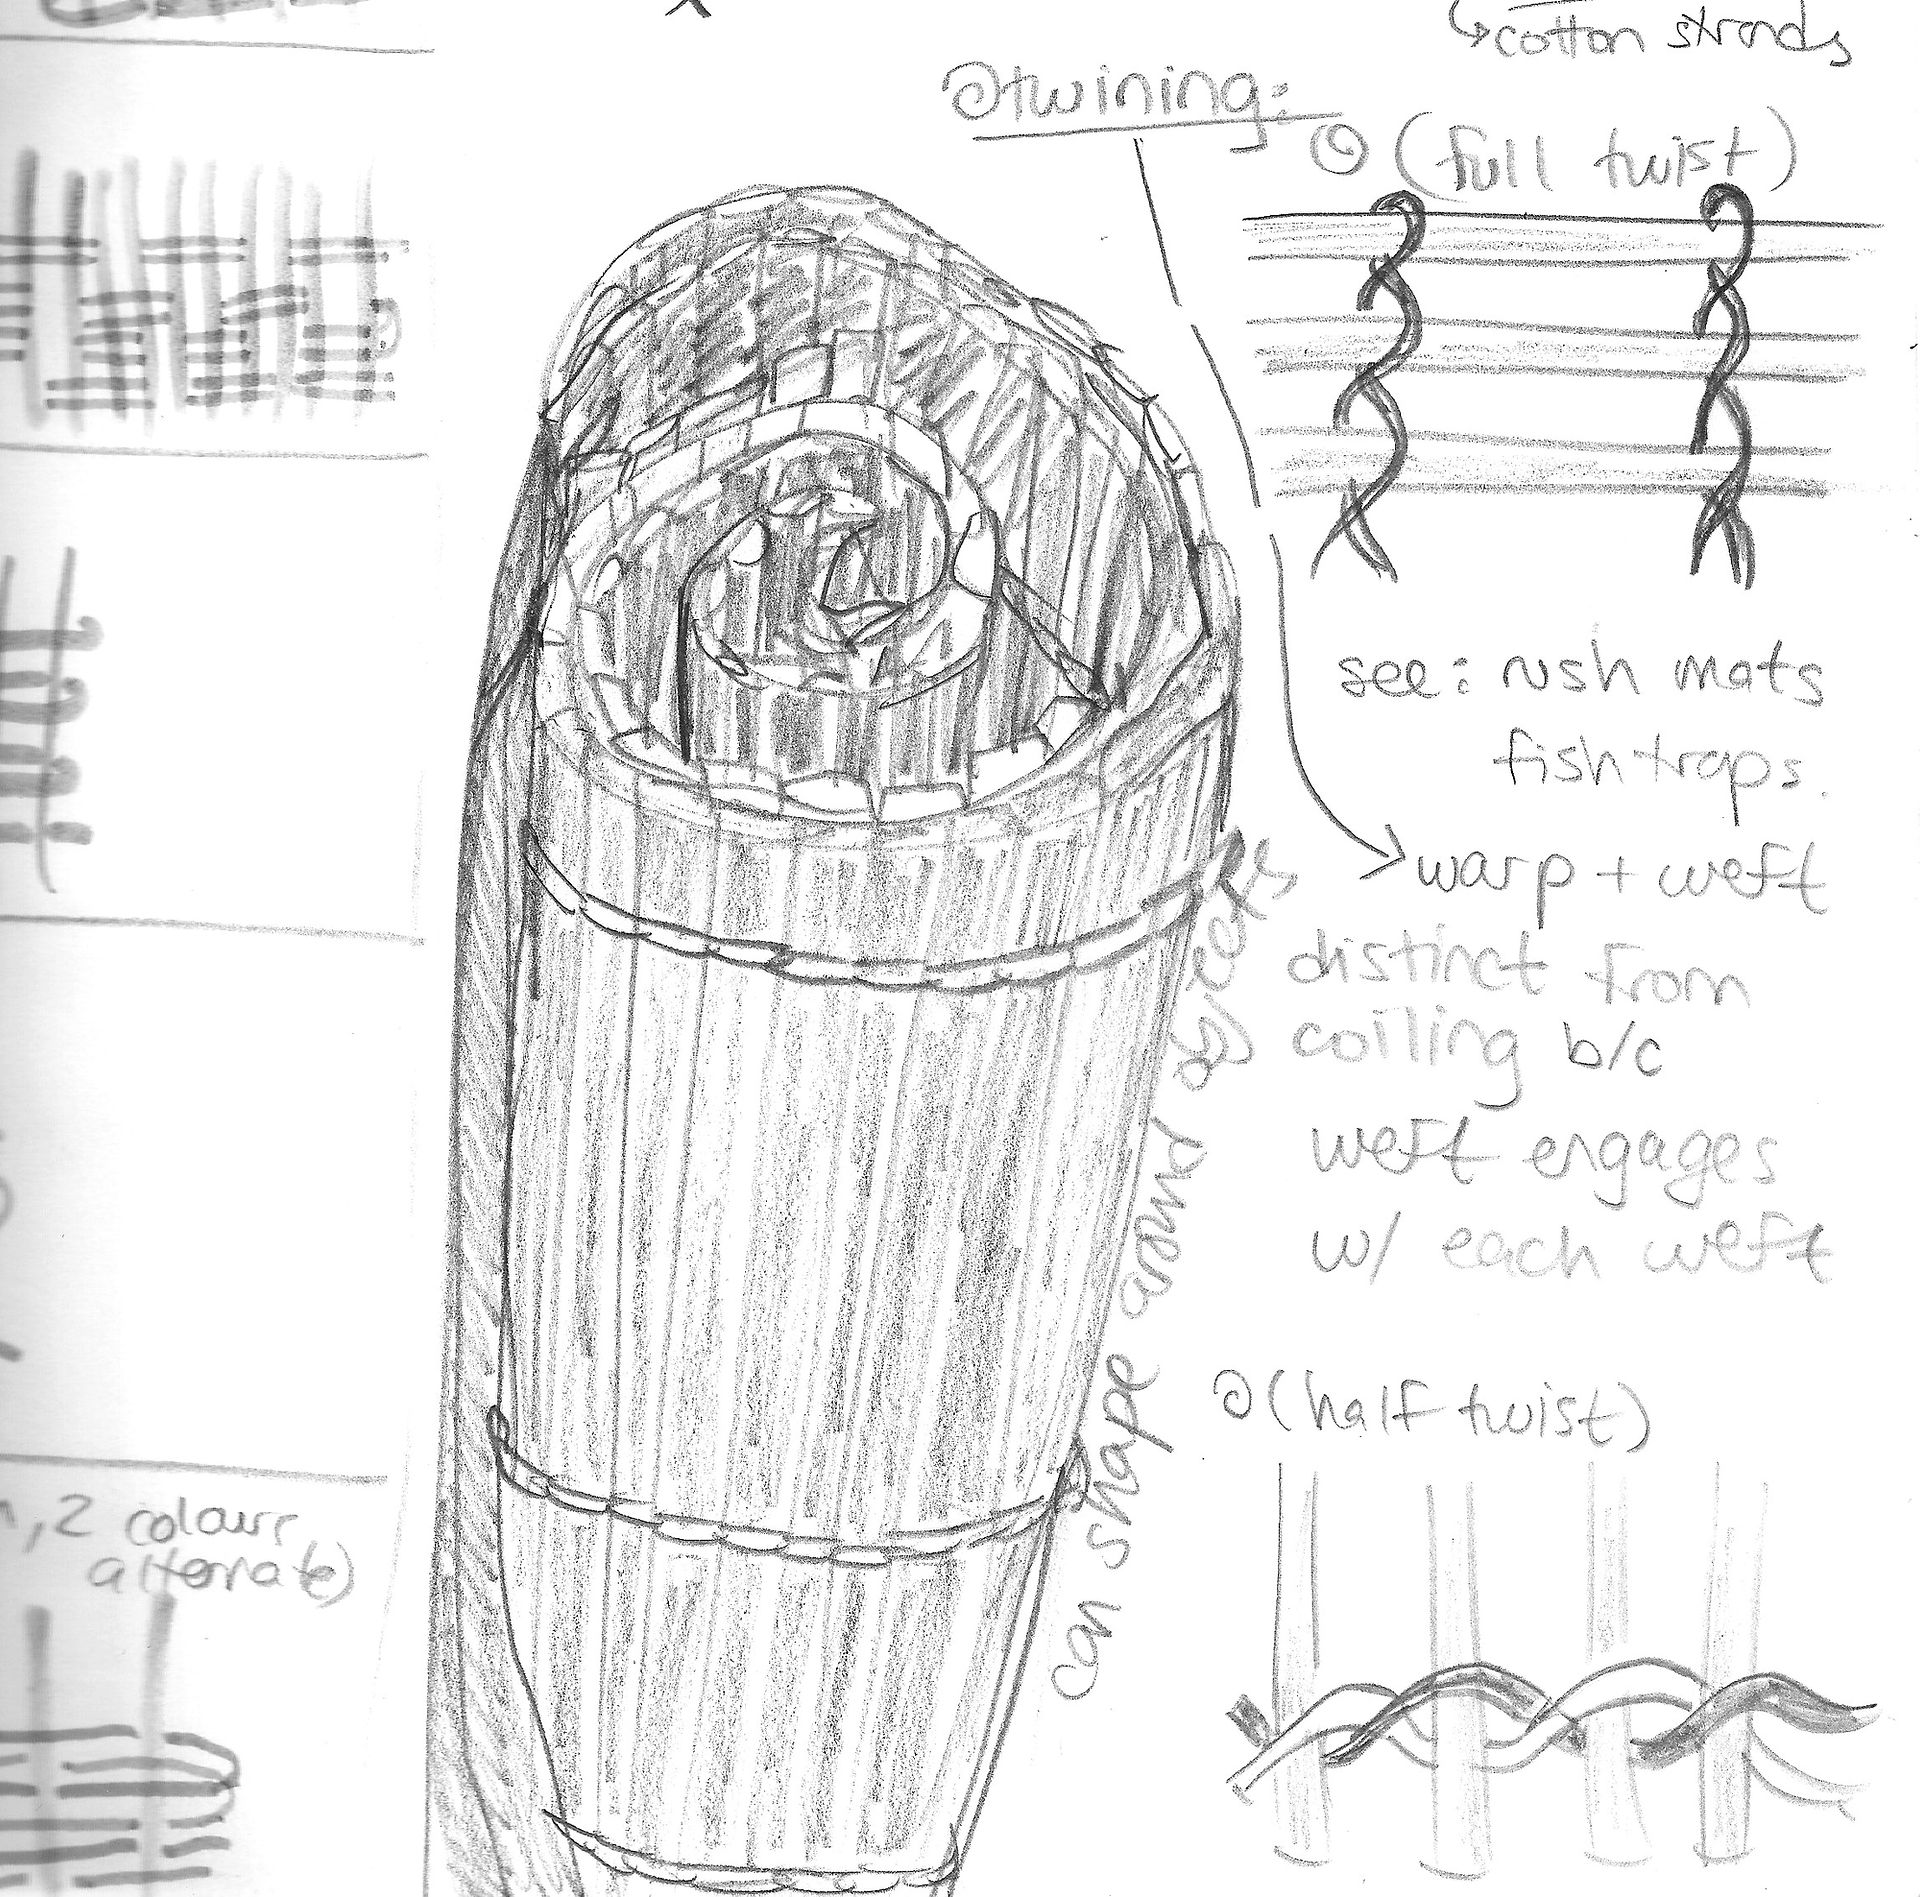 cotton strands
twining:
(full twist)
see: rush mats
fish traps.
warp + weft
distinct from
coiling b/c
weft engages
w/ each weft
can shape around objects
(half twist)
, 2 colours
alternate)